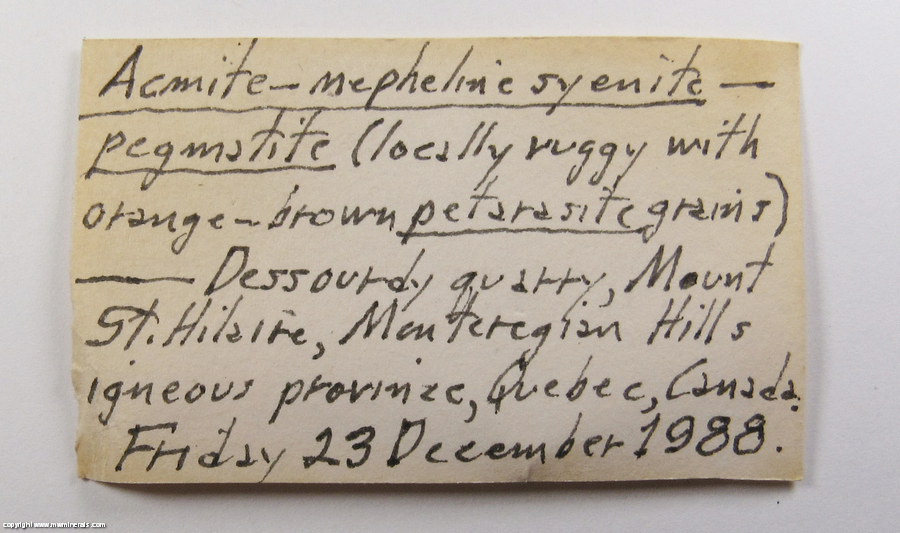 Acmite - nepheline syenite -
pegmatite (locally vuggy with
orange - brown petarasite grains)
— Dessourdy quarry, Mount
St. Hilaire, Monteregian Hills
igneous province, Quebec, Canada.
Friday 23 December 1988.
copyright www.mwminerals.com